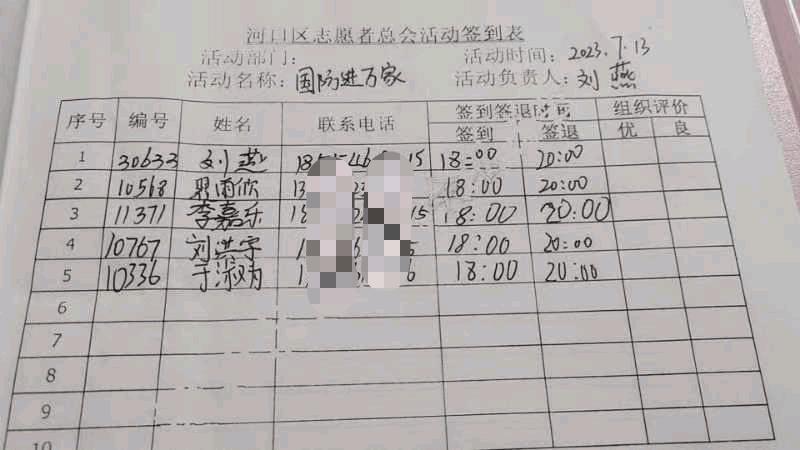 河口区志愿者总会活动签到表
活动部门： 活动时间：2023.7.13
活动名称：国防进万家 活动负责人：刘燕
序号 编号 姓名 联系电话 签到签退时间 组织评价
签到 签退 优 良
1 30633 刘燕 18:00 20:00
2 10568 郭雨欣 18:00 20:00
3 11371 李嘉乐 18:00 20:00
4 10767 刘洪宇 18:00 20:00
5 10336 于淑为 18:00 20:00
6
7
8
9
10